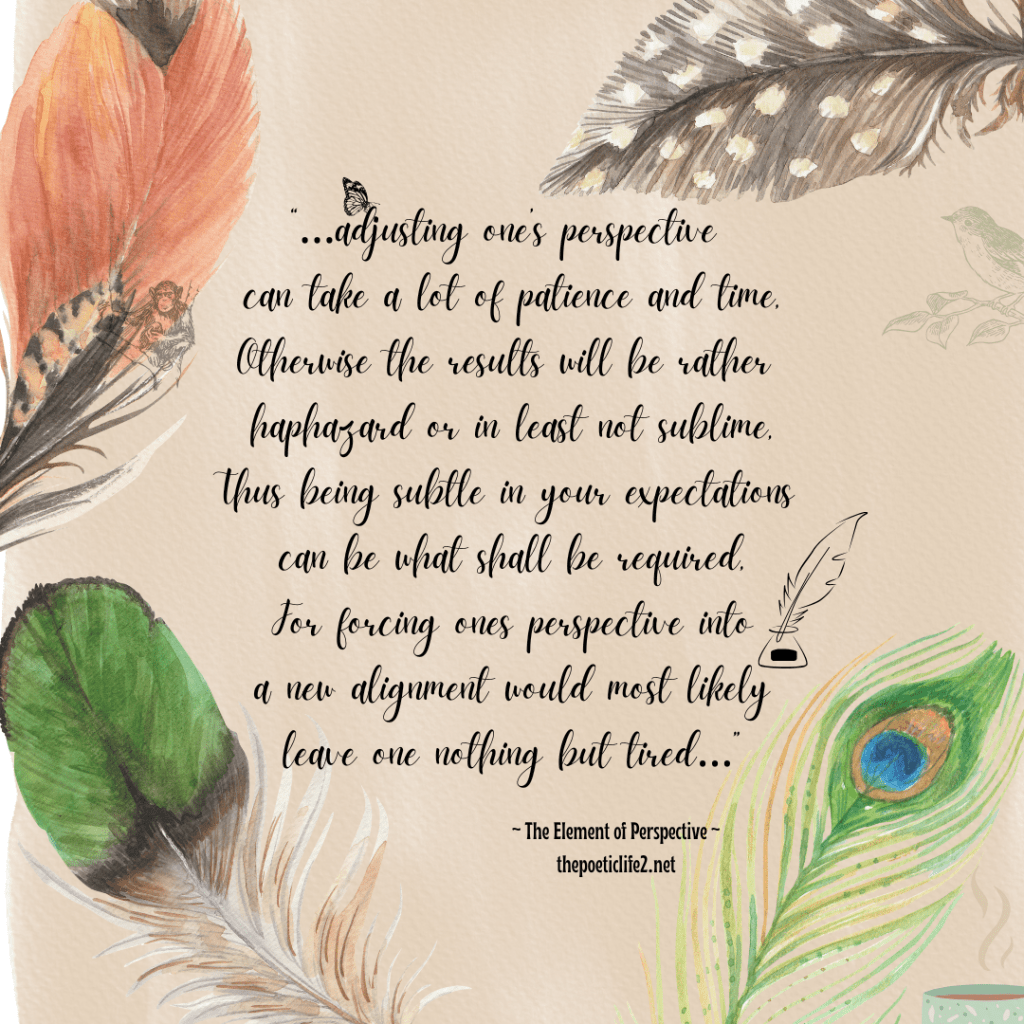 "...adjusting one's perspective
can take a lot of patience and time.
Otherwise the results will be rather
haphazard or in least not sublime.
Thus being subtle in your expectations
can be what shall be required.
For forcing ones perspective into
a new alignment would most likely
leave one nothing but tired..."
~ The Element of Perspective ~
thepoeticlife2.net